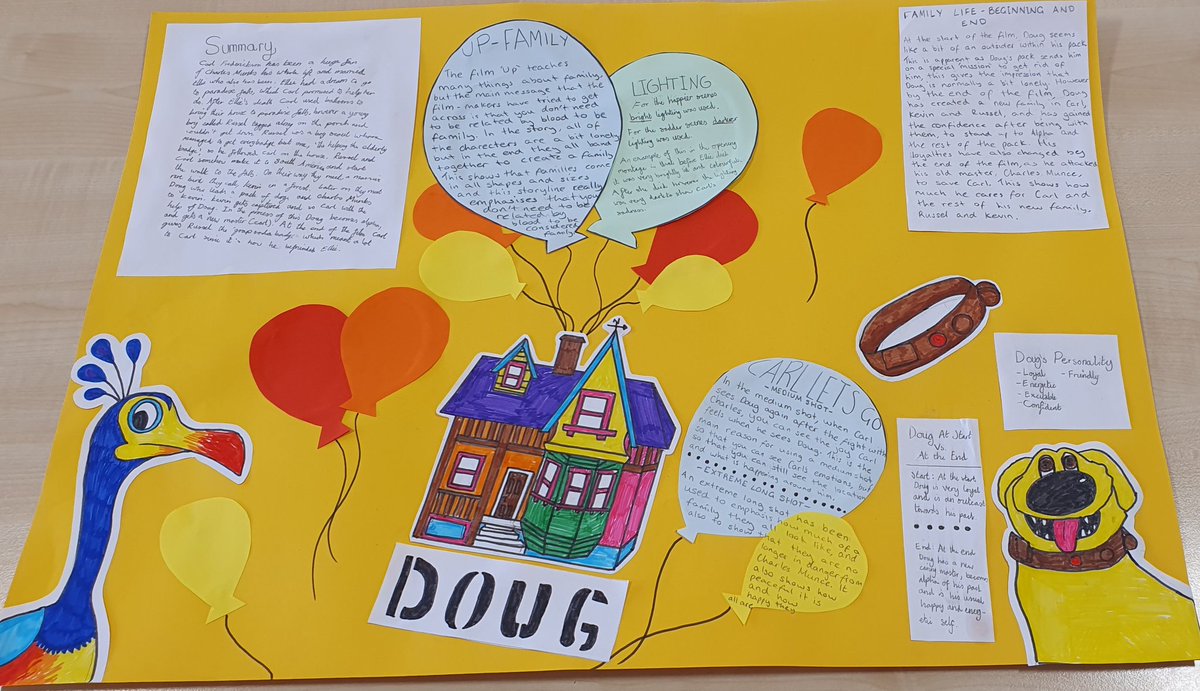 Summary
Carl Fredrickson has been a huge fan
of Charles Muntz his whole life and married
Ellie who also was been. Ellie had a dream to go
to paradise falls, which Carl promised to help her
to do. After Ellie's death Carl used balloons to
bring their house to paradise falls, however a young
boy called Russel tagged along on the porch and
wouldn't get down. Russel was a boy scout whom
managed to get every badge but one, 'the helping the elderly
badge', so he followed Carl on the house. Russel and
Carl somehow make it to South America and start
the walk to the falls. On their way they meet a massive
rare bird they call Kevin in a forest. Later on they meet
Doug who leads a pack of dogs, and Charles Munts
to Kevin. Kevin gets captured and so Carl with the
help of Doug. In the process of this Doug becomes alpha,
and gets a new master (Carl). At the end of the film Carl
gives Russel the grape soda badge which meant a lot
to Carl since it's how he befriended Ellie.
UP-FAMILY
The film 'Up' teaches
many things about family,
but the main message that the
film-makers have tried to get
across is that you don't need
to be related by blood to be
family. In the story, all of
the charecters are bit lonely
but in the end they all band
together to create a family
This shows that families
in all shapes and sizes
and this storyline really
emphasises that you
don't need to be
related by
blood to be
considered
family.
LIGHTING
For the happier scenes
bright lighting was used.
For the sadder scenes darker
lighting was used.
An example of this is the opening
montage. Just before Ellie died
it was very brightly lit and colourful.
After she died however the lighting
was very dark to show Carl's
sadness.
FAMILY LIFE-BEGINNING AND
END
At the start of the film, Doug seems
like a bit of an outsider within his pack
This is apparent as Doug's pack sends him
on a special mission to get rid of
him, this gives the impression that
Doug is normally a bit lonely. However
by the end of the film, Doug
has created a new family in Carl,
Kevin and Russel, and has gained
the confidence after being with
them, to stand up to Alpha and
the rest of the pack. His
loyalties have also changed by
the end of the film, as he attacked
his old master, Charles Munce,
to save Carl. This shows how
much he cares for Carl and
the rest of his new family,
Russel and Kevin.
CARL LETS GO
-MEDIUM SHOT-
In the medium shot, when Carl
sees Doug again after the fight with
Charles, you can see the joy Carl
feels when he sees Doug. This is the
main reason for using a medium shot
so that you can see Carl's emotions, but
so that you can still see the location
and what is happening around them.
-EXTREME LONG SHOT-
An extreme long shot has been
used to emphasis how much of a
family they all look like, and
also to show that they are no
longer in danger from
Charles Munce. It
also shows how
peaceful it is
and how
happy they
all are
Doug's Personality
-Loyal -Friendly
-Energetic
-Excitable
-Confident
Doug At Start
Vs.
At the End
Start: At the start
Doug is very loyal
and is an outcast
towards his pack.
End: At the end
Doug has a new
caring master, becomes
alpha of his pact
and is his usual
happy and energ-
etic self.
DOUG